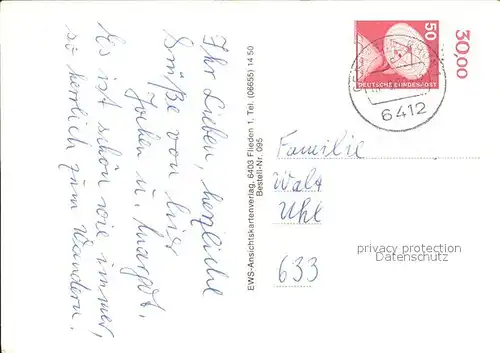 Ihr Lieben, herzliche
Grüße von hier
Jochen u. Margot.
Es ist schön wie immer,
so herrlich zum Wandern.
EWS-Ansichtskartenverlag, 6403 Flieden 1, Tel. (06655) 14 50
Bestell-Nr. 095
50
DEUTSCHE BUNDESPOST
30,00
6412
Familie
Walt
Uhl
633
privacy protection
Datenschutz